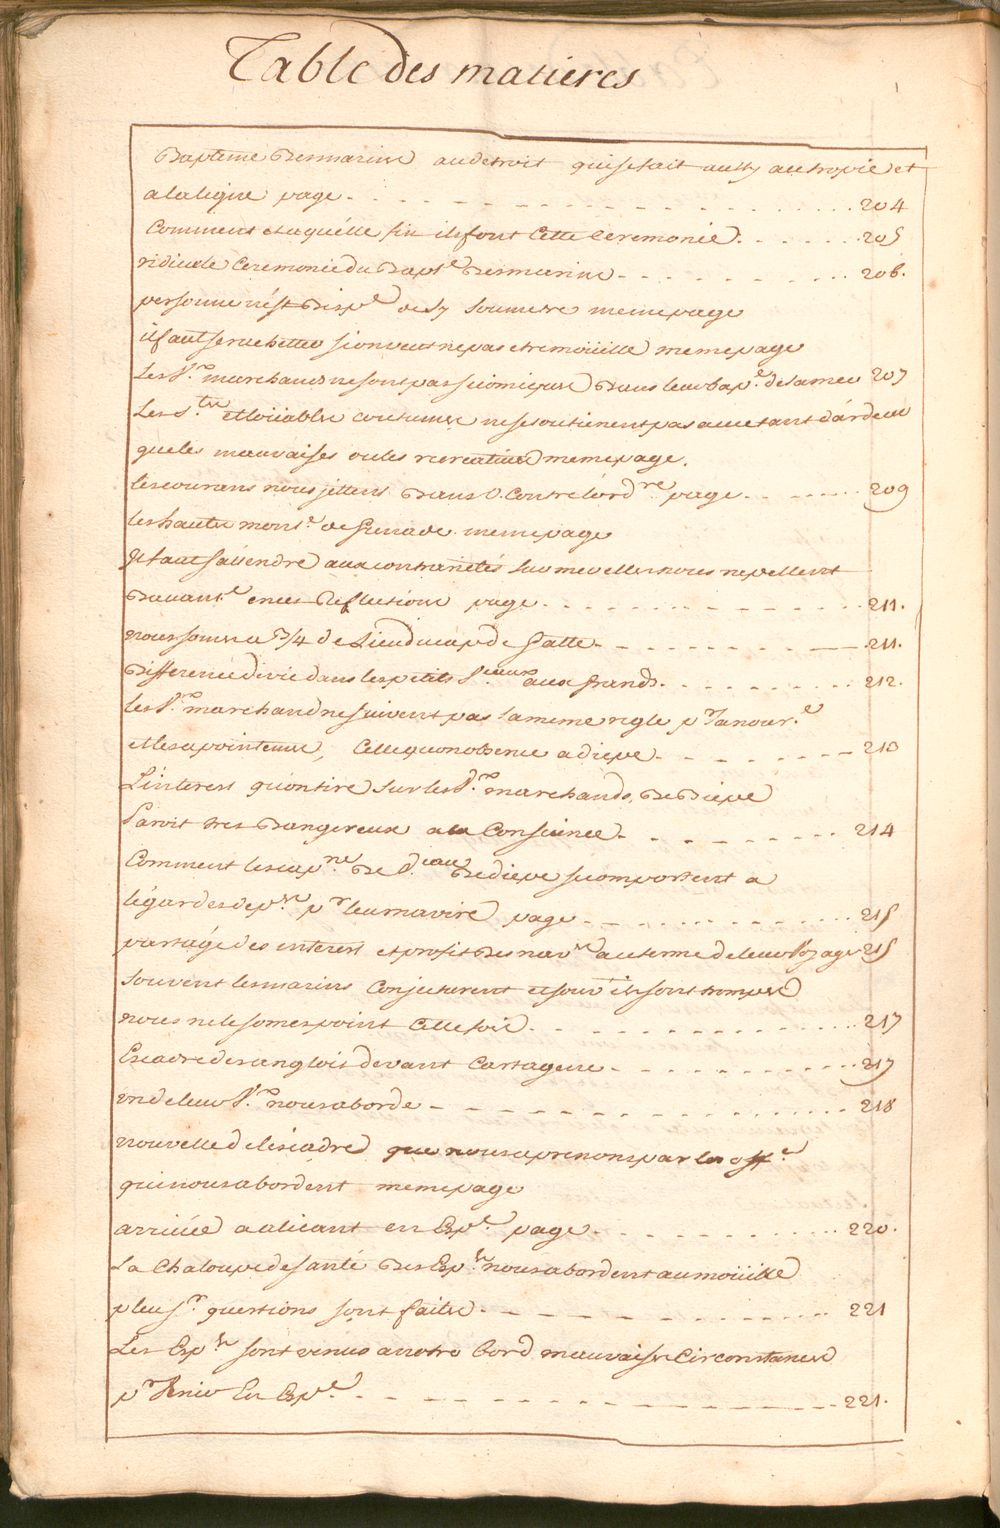 Table des matieres
Baptême des marins au detroit qui se fait aussy au tropic et
a la ligne page 204
Comment et a quélle fin ils font Cette Ceremonie 205
ridicule Ceremonie du Bapt.e des marins 206.
personne n'ést Disp.é de sy soumetre meme page
il faut se rachetter si on veut ne pas etre moüille meme page
Les V.x marchands ne sont pas si comiques dans leur bap.e de la mer 207
Les s.tes et loüables coutumes ne se soutienent pas avec tant d'árdeur
que les mauvaises ou les recreatives meme page.
les courans nous jettent dans V. Contre l'ord.re page 209
les hautes mont.s de Grenade meme page
Il faut s'attendre aux contrarietés sur mer elles nous rapellent
Davant.e en ces Reflections page 211.
nous somes a 3/4 de Lieu du cap de Gatte 211.
Difference de vie dans les petits V.eaux aux Grands 212.
les V.x marchands ne suivent pas la meme regle p.r la nour.e
et les apointemens, Celle qu'on observe a diepe 213
L'interest qu'on tire sur les V.x marchands de Diepe
Paroit tres Dangereux a la Consience 214
Comment les cap.nes De V.eaux De diepe se comportent a
l'égard des dep.ses p.r leur navire page 215
partage des interest et profit des nav.res au terme de leur Voyage 215
souvent les marins Conjecturent et souv.t ils sont trompes
nous ne le somes point Cette fois 217
Escadre des anglois devant Cartagene 217
un de leur V.x nous aborde 218
nouvelle de l'escadre que nous aprenons par les off.rs
qui nous abordent meme page
arrivée a alicant en Esp.e page 220.
La Chaloupe de santé des Esp.ls nous abordent au moüille
plus.rs questions sont faites 221
Les Esp.ls sont venus a notre bord mauvaises Circonstances
p.r venir En Esp.e 221.